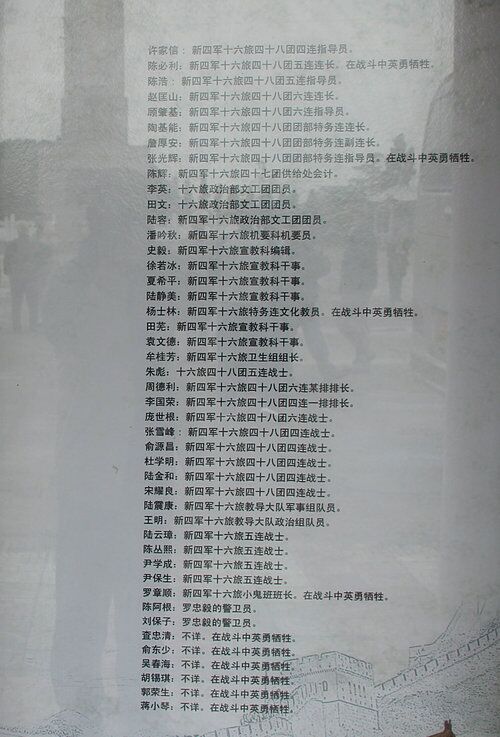 许家信：新四军十六旅四十八团四连指导员。
陈必利：新四军十六旅四十八团五连连长。在战斗中英勇牺牲。
陈浩：新四军十六旅四十八团五连指导员。
赵匡山：新四军十六旅四十八团六连连长。
顾肇基：新四军十六旅四十八团六连指导员。
陶基能：新四军十六旅四十八团团部特务连连长。
詹厚安：新四军十六旅四十八团团部特务连副连长。
张光辉：新四军十六旅四十八团团部特务连指导员。在战斗中英勇牺牲。
陈辉：新四军十六旅四十七团供给处会计。
李英：十六旅政治部文工团团员。
田文：十六旅政治部文工团团员。
陆容：新四军十六旅政治部文工团团员。
潘吟秋：新四军十六旅机要科机要员。
史毅：新四军十六旅宣教科编辑。
徐若冰：新四军十六旅宣教科干事。
夏希平：新四军十六旅宣教科干事。
陆静美：新四军十六旅宣教科干事。
杨士林：新四军十六旅特务连文化教员。在战斗中英勇牺牲。
田芜：新四军十六旅宣教科干事。
袁文德：新四军十六旅宣教科干事。
牟桂芳：新四军十六旅卫生组组长。
朱彪：十六旅四十八团五连战士。
周德利：新四军十六旅四十八团六连某排排长。
李国荣：新四军十六旅四十八团四连一排排长。
庞世根：新四军十六旅四十八团六连战士。
张雪峰：新四军十六旅四十八团四连战士。
俞源昌：新四军十六旅四十八团四连战士。
杜学明：新四军十六旅四十八团四连战士。
陆金和：新四军十六旅四十八团四连战士。
宋耀良：新四军十六旅四十八团四连战士。
陆震康：新四军十六旅教导大队军事组队员。
王明：新四军十六旅教导大队政治组队员。
陆云璋：新四军十六旅五连战士。
陈丛熙：新四军十六旅五连战士。
尹学成：新四军十六旅五连战士。
尹保生：新四军十六旅五连战士。
罗章顺：新四军十六旅小鬼班班长。在战斗中英勇牺牲。
陈阿根：罗忠毅的警卫员。
刘保子：罗忠毅的警卫员。
查忠清：不详。在战斗中英勇牺牲。
俞东少：不详。在战斗中英勇牺牲。
吴春海：不详。在战斗中英勇牺牲。
胡锡琪：不详。在战斗中英勇牺牲。
郭荣生：不详。在战斗中英勇牺牲。
蒋小琴：不详。在战斗中英勇牺牲。